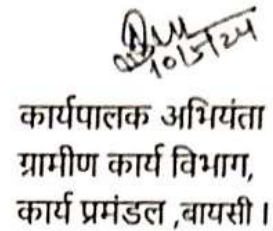 10/5/24
कार्यपालक अभियंता
ग्रामीण कार्य विभाग,
कार्य प्रमंडल ,बायसी ।